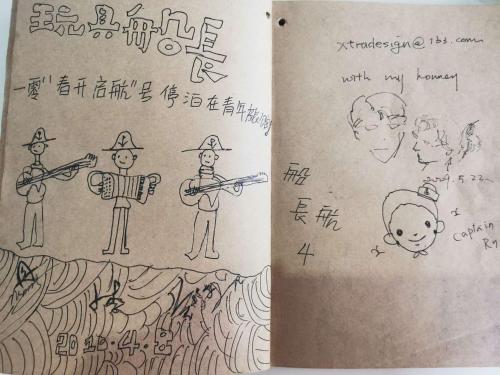 玩具船長
一零"春开启航"号停泊在青年旅
2010.4.8
xtradesign@163.com
with my honney
船
長
航
4
Captain